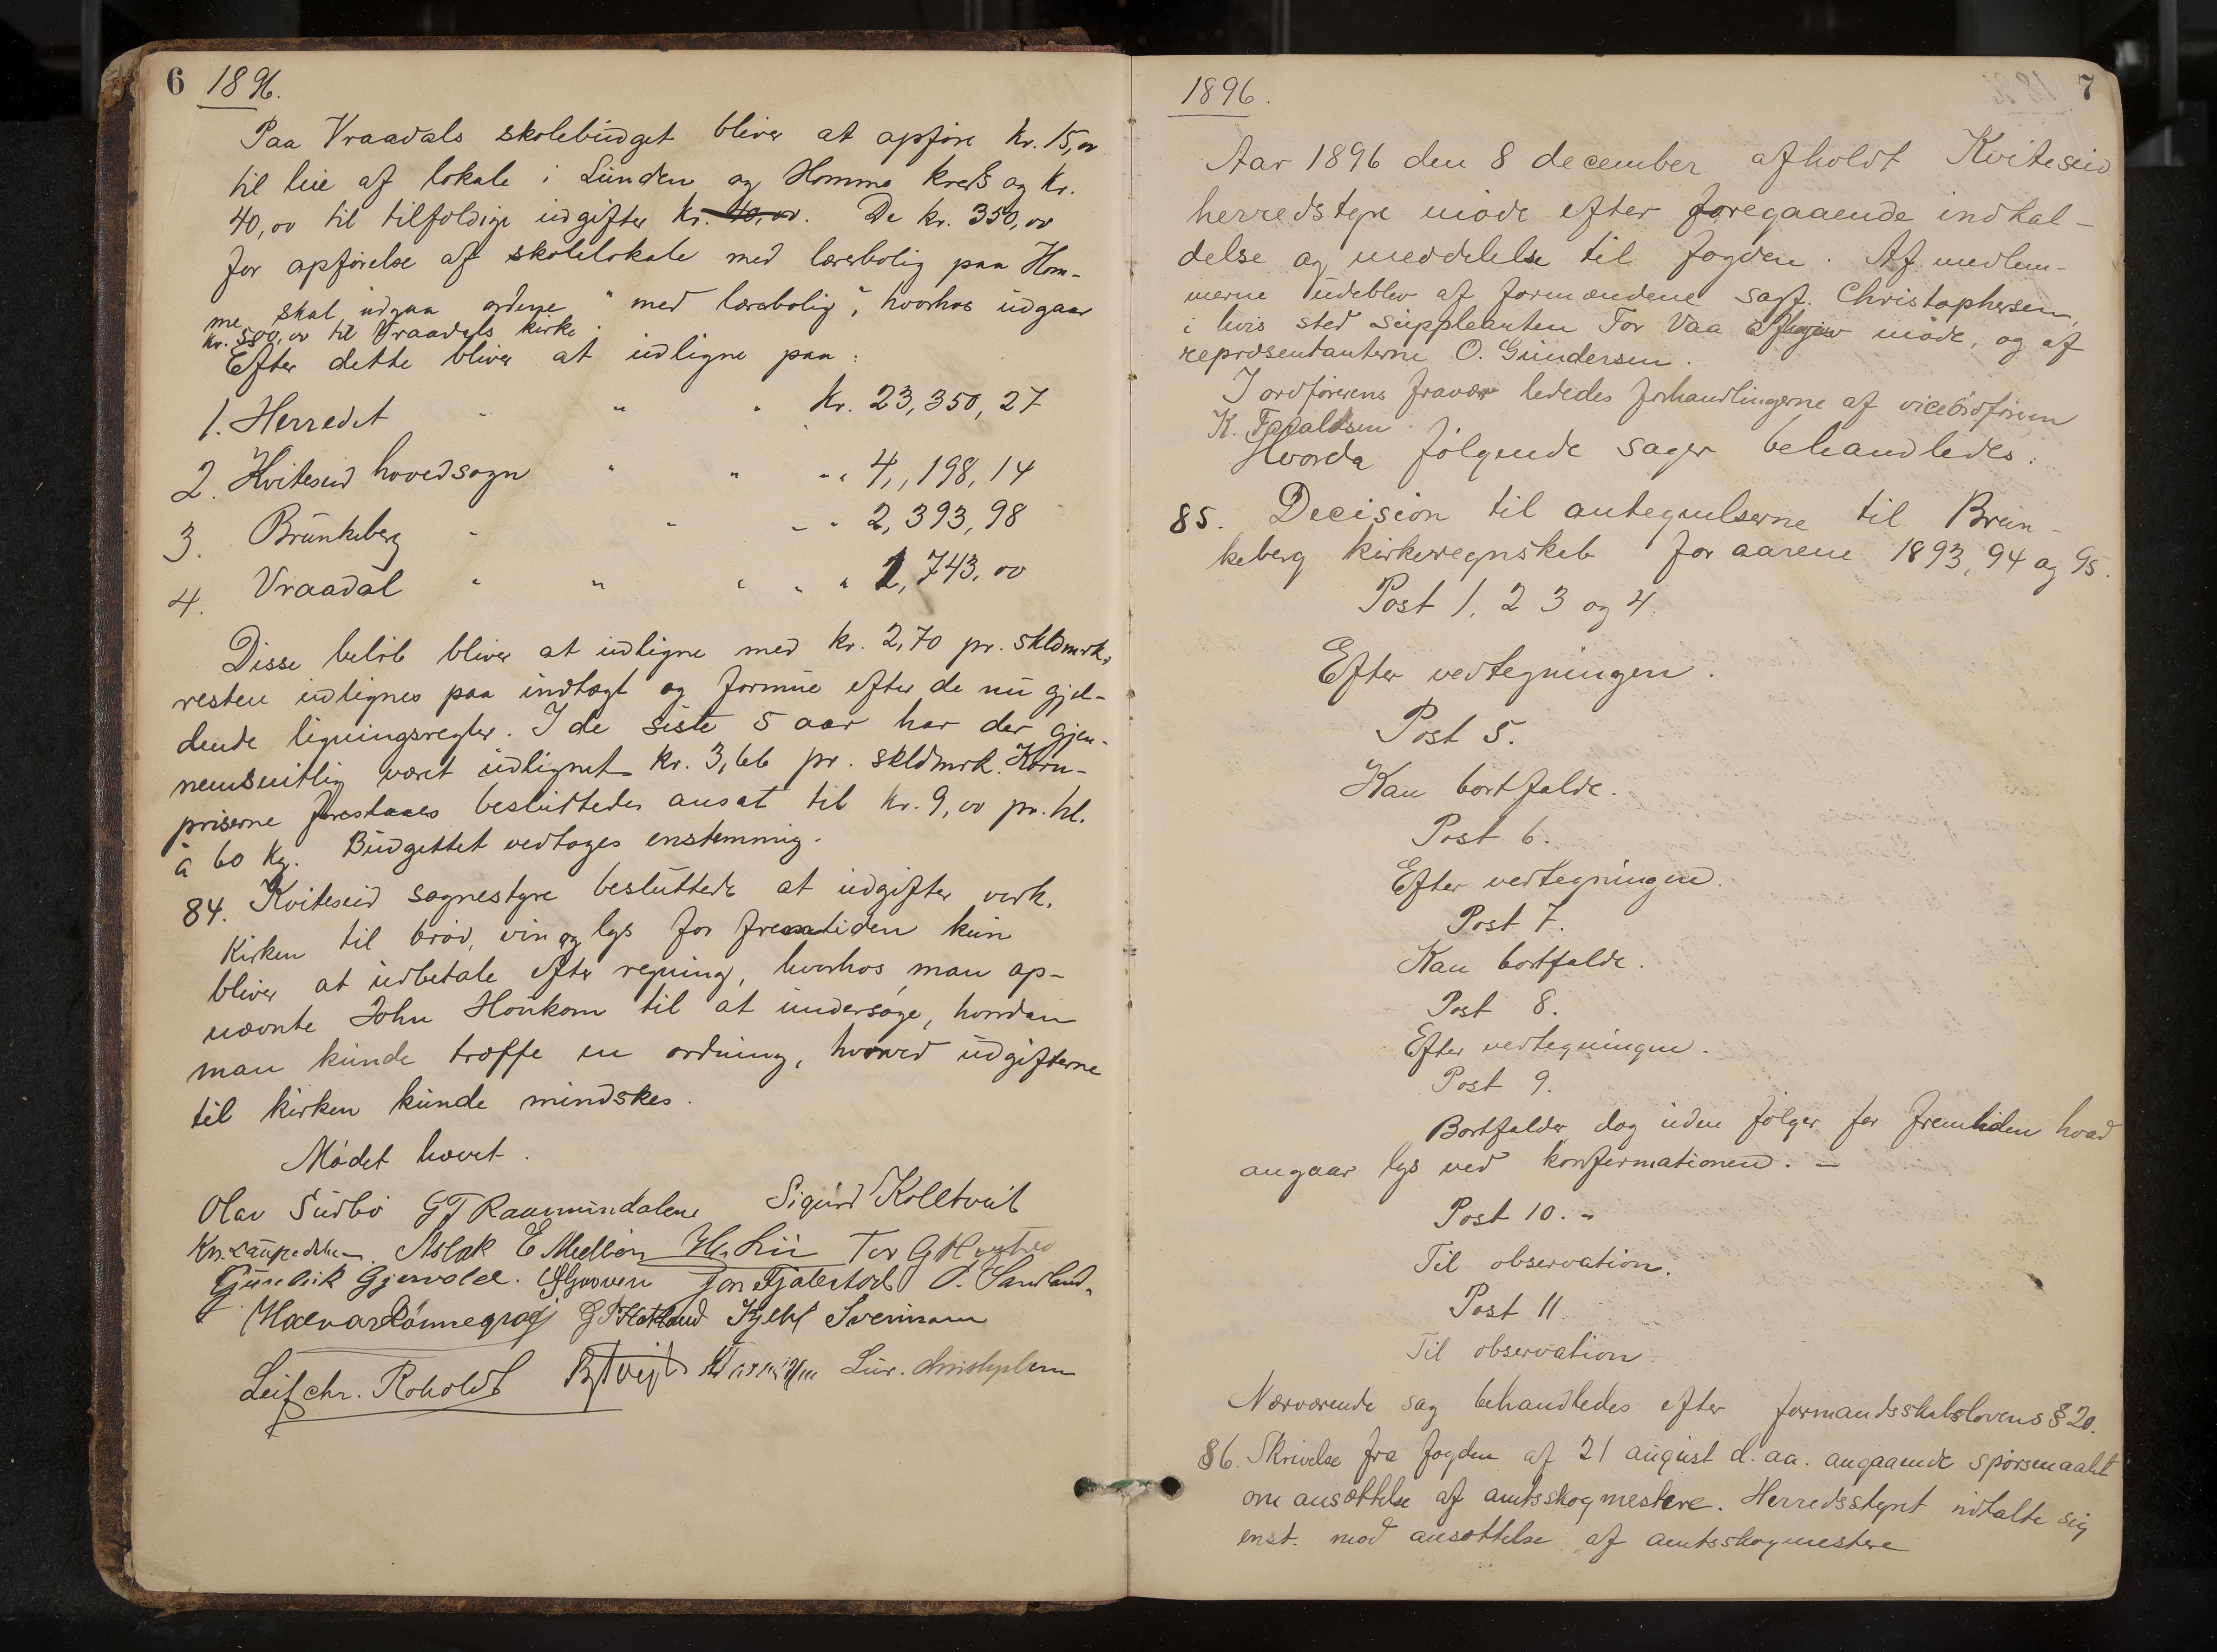 6 1896.
Paa Vraadals skolebudget bliver at opføre kr. 15,00
til leie af lokale i Lunden og Homme kreds og kr.
40,00 til tilfældige udgifter kr. 40,00. De kr. 350,00
for opførelse af skolelokale med lærerbolig paa Hom-
me skal udgaa ordene "med lærerbolig", hvorhos udgaar
kr. 500,00 til Vraadals kirke.
Efter dette bliver at udligne paa:
1. Herredet " " " kr. 23,350,27
2. Kviteseid hovedsogn " " " " 4,198,14
3. Brunkeberg " " " " 2,393,98
4. Vraadal " " " " " 1,743,00
Disse beløb bliver at udligne med kr. 2,70 pr. skldmrk,
resten udlignes paa indtægt og formue efter de nu gjæl-
dende ligningsregler. I de siste 5 aar har der gjen-
nemsnitlig været udlignet kr. 3,66 pr. skldmrk. Korn-
priserne besluttedes ansat til kr. 9,00 pr. hl.
à 60 kg. Budgettet vedtoges enstemmig.
84. Kviteseid sognestyre besluttede at udgifter vedk.
kirken til brød, vin og lys for fremtiden kun
bliver at udbetale efter regning, hvorhos man op-
nævnte John Honkom til at undersøge, hvordan
man kunde træffe en ordning, hvorved udgifterne
til kirken kunde mindskes.
Mødet hævet.
Olav Sudbø G T Raumundalen Sigurd Kolltveit
Aslak E Mælbon H. Lii Tor G
Gunleik Gjervolld. Jon Fjalestad O. Sandland.
Halvar Lønnegrav G P Hatland Kjetil Sveinson
Leif chr. Roholdt
1896. 7
Aar 1896 den 8 december afholdt Kviteseid
herredstyre møde efter foregaaende indkal-
delse og meddelelse til fogden. Af medlem-
merne udeblev af formændene sagf. Christophersen,
i hvis sted suppleanten Tor Vaa møde, og af
repræsentanterne O. Gundersen.
I ordførerens fravær lededes forhandlingerne af viceordføreren
K. Taraldsen.
Hvorda følgende sager behandledes:
85. Decision til antegnelserne til Brun-
keberg kirkeregnskab for aarene 1893, 94 og 95.
Post 1, 2 3 og 4.
Efter vedtegningen.
Post 5.
Kan bortfalde.
Post 6.
Efter vedtegningen.
Post 7.
Kan bortfalde.
Post 8.
Efter vedtegningen.
Post 9.
Bortfalder dog uden følger for fremtiden hvad
angaar lys ved konfirmationen. —
Post 10. –
Til observation.
Post 11
Til observation
Nærværende sag behandledes efter formandsskabslovens § 20.
86. Skrivelse fra fogden af 21 august d. aa. angaaende spørsmaalet
om ansættelse af amtsskogmestere. Herredsstyret udtalte sig
enst. mod ansættelse af amtsskogmestere